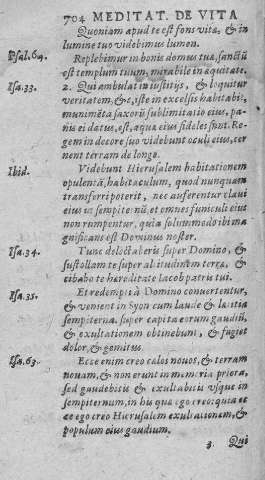 704 MEDITAT. DE VITA
Quoniam apud te est fons vitæ, & in
lumine tuo videbimus lumen.
Psal. 64. Replebimur in bonis domus tuæ, sanctũ
est templum tuum, mirabile in æquitate.
Isa. 33. 2. Qui ambulat in iustitijs, & loquitur
veritatem, &c, iste in excelsis habitabit,
munimẽta saxorũ sublimitatio eius, pa-
nis ei datus est, aquæ eius fideles sunt. Re-
gem in decore suo videbunt oculi eius, cer-
nent terram de longe.
Ibid. Videbunt Hierusalem habitationem
opulentã, habitaculum, quod nunquam
transferri poterit, nec auferentur claui
eius in sempiternũ, et omnes funiculi eius
non rumpentur, quia solummodo ibi ma-
gnificans est Dominus noster.
Isa. 34. Tunc delectaberis super Domino, &
sustollam te super altitudinem terræ, &
cibabo te hæreditate Iacob patris tui.
Isa. 35. Et redempti à Domino conuertentur,
& venient in Syon cum laude & lætitia
sempiterna, super capita eorum gaudiũ,
& exultationem obtinebunt, & fugiet
dolor, & gemitus.
Isa. 65. Ecce enim creo cælos nouos, & terram
nouam, & non erunt in memoria priora,
sed gaudebitis & exultabitis vsque in
sempiternum, in his quæ ego creo: quia ec-
ce ego creo Hierusalem exultationem, &
populum eius gaudium.
3. Qui